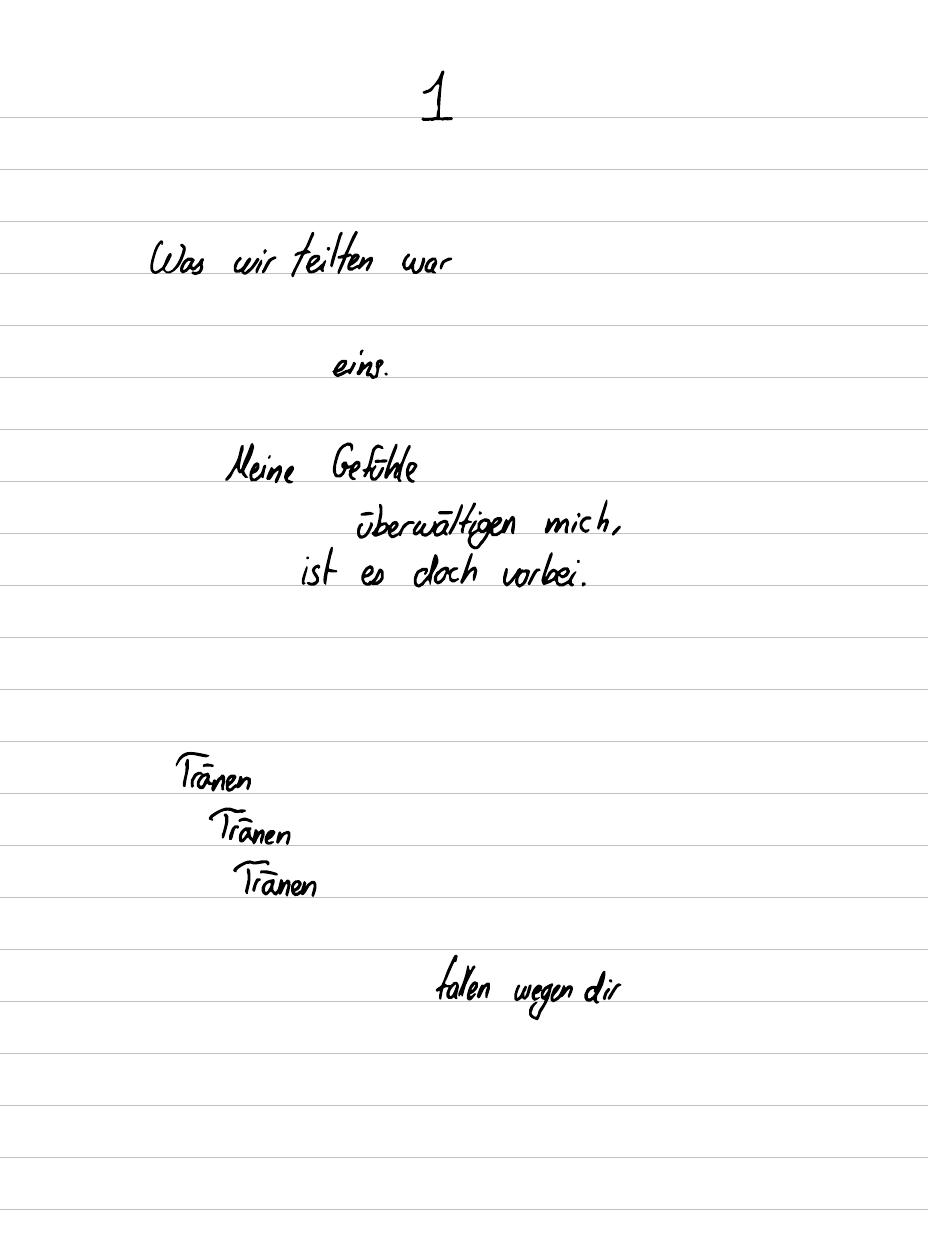 1
Was wir teilten war
eins.
Meine Gefühle
überwältigen mich,
ist es doch vorbei.
Tränen
Tränen
Tränen
fallen wegen dir